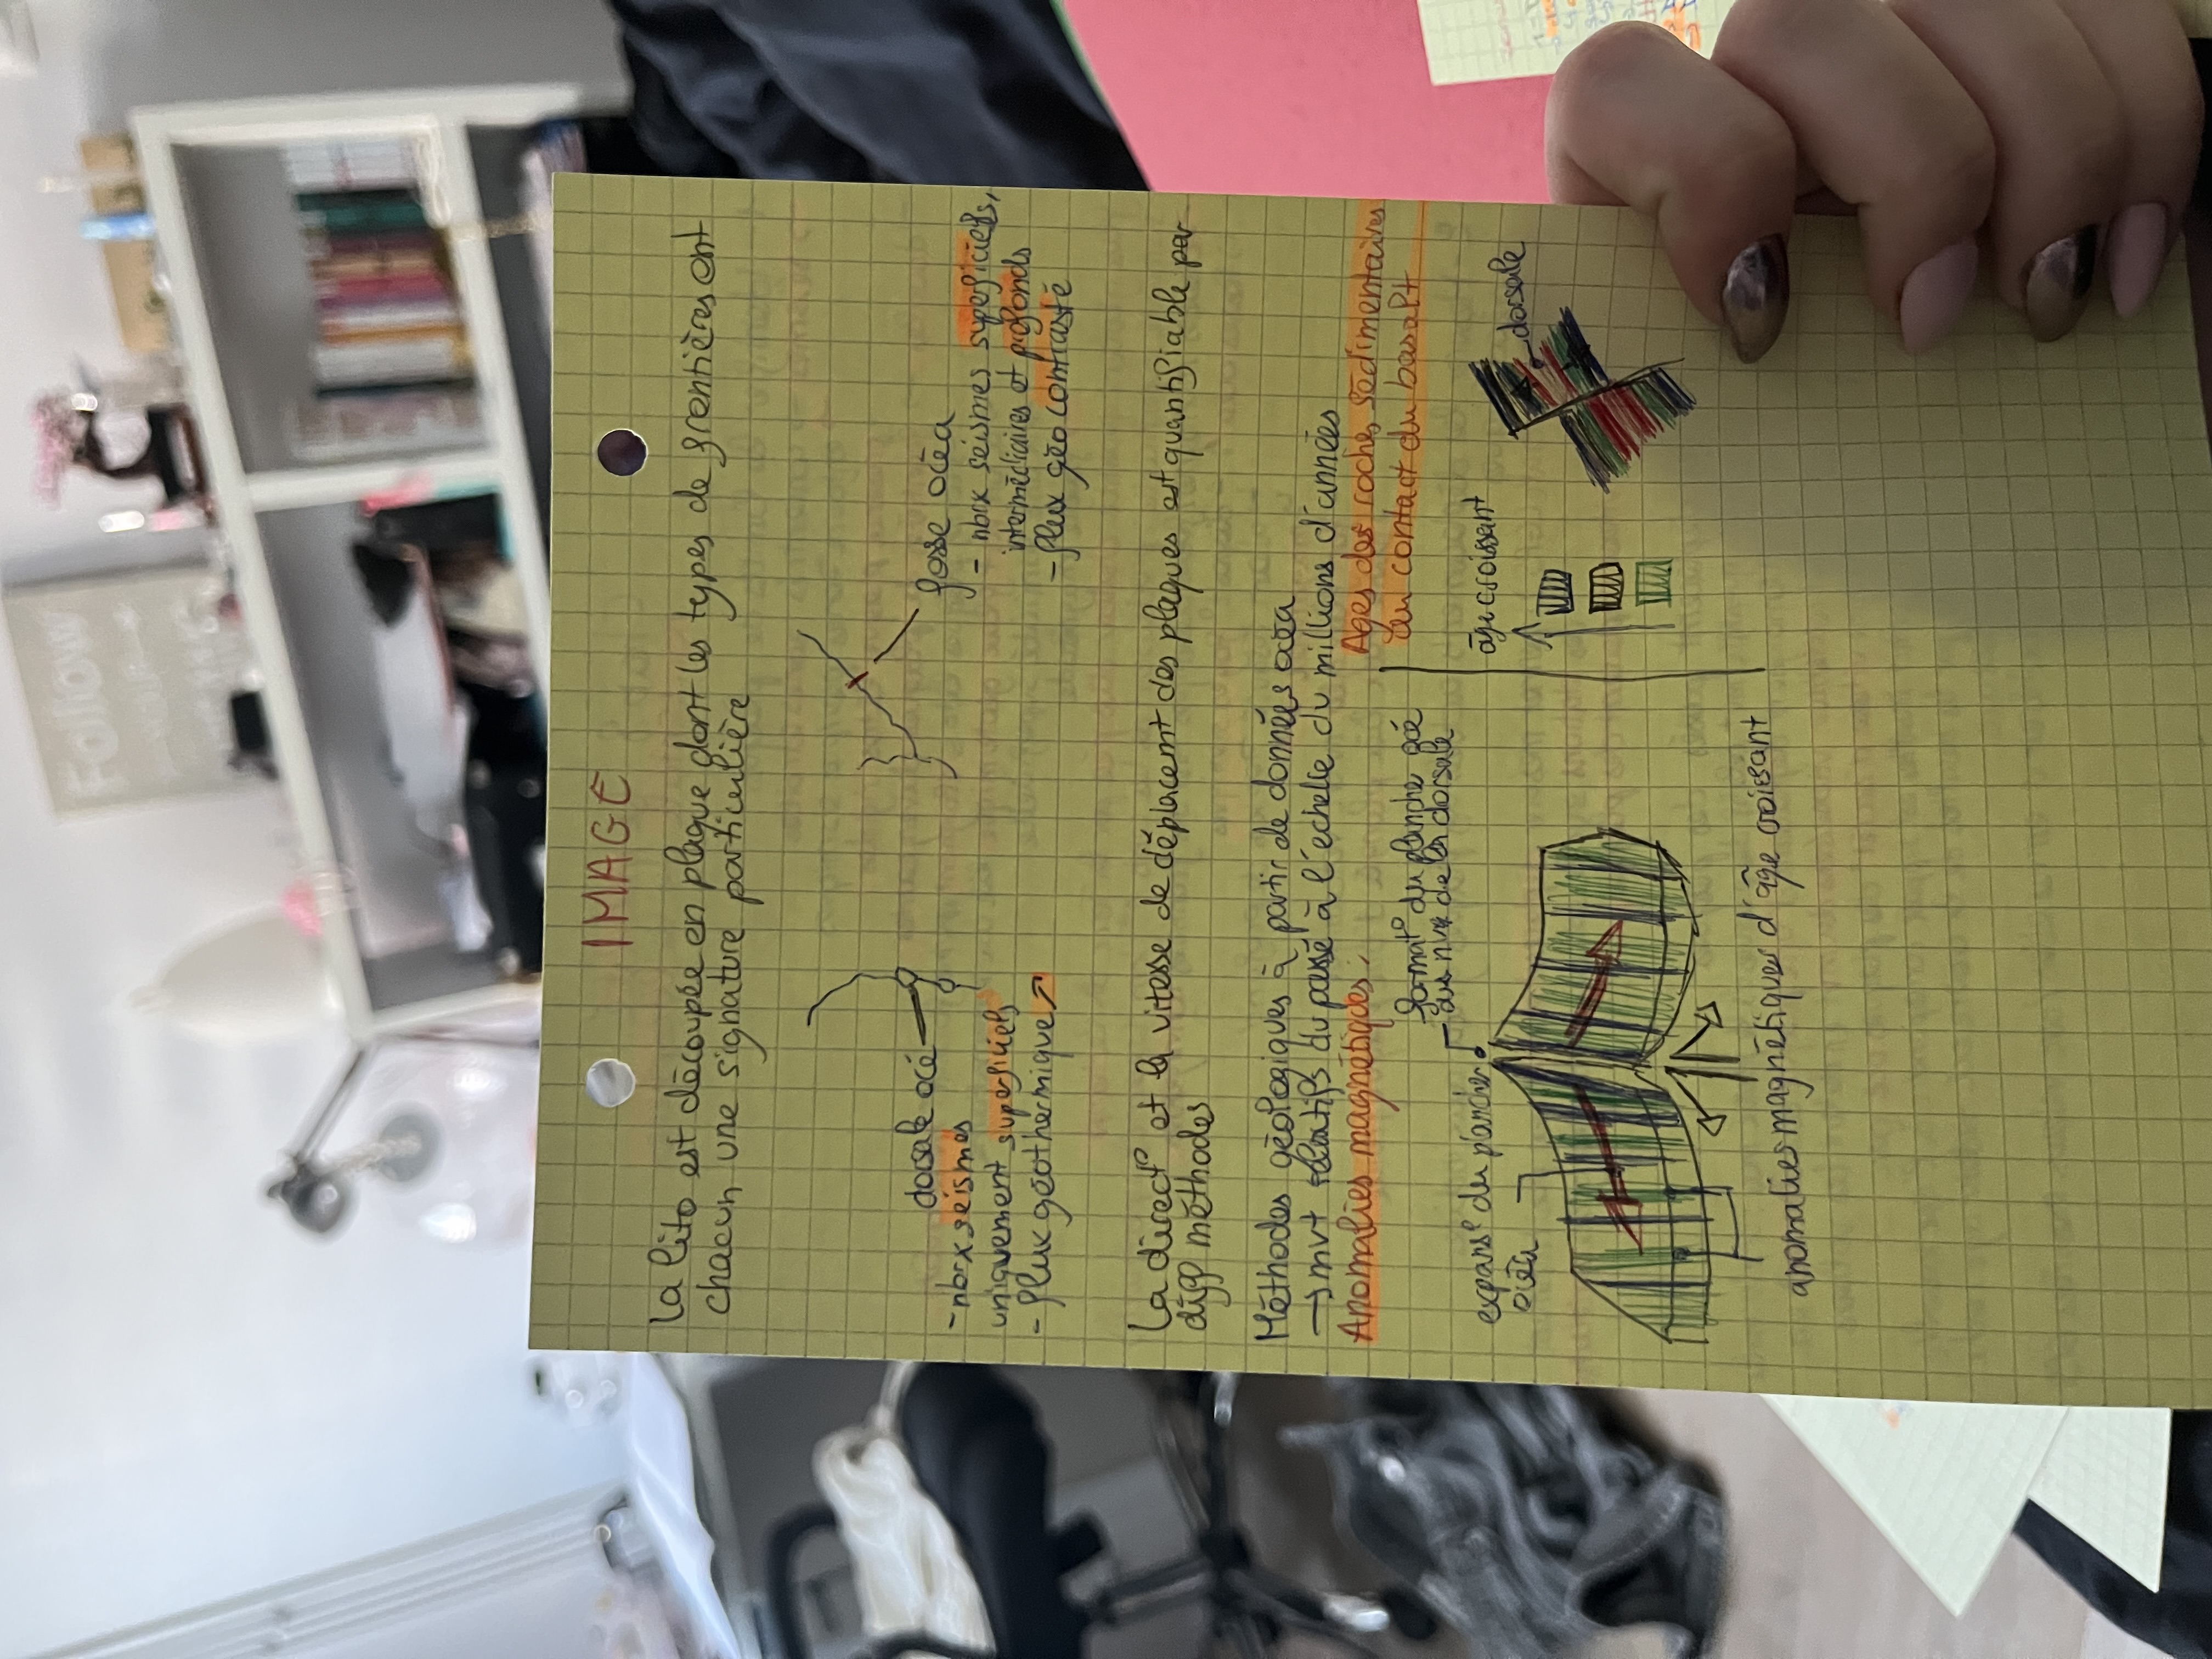 IMAGE
La lito est découpée en plaque dont les types de frontières ont
chacun une signature particulière
dosale océ
- nbrx séismes
uniquement superficiels
- flux géothermique ↗
fosse océa
- nbrx seismes superficiels,
intermédiaires et profonds
- flux géo contrasté
La direct° et la vitesse de déplacement des plaques est quantifiable par
diff méthodes
Méthodes géologiques à partir de données océa
→ mvt relatifs du passé à l'échelle du millions d'années
Anomalies magnétiques.
format° du planche océ
au nv de la dorsale
expans° du plancher
océa
anomalies magnétiques d'âge croissant
Ages des roches sédimentaires
au contact du basalt
âge croissant
dorsale
Follow